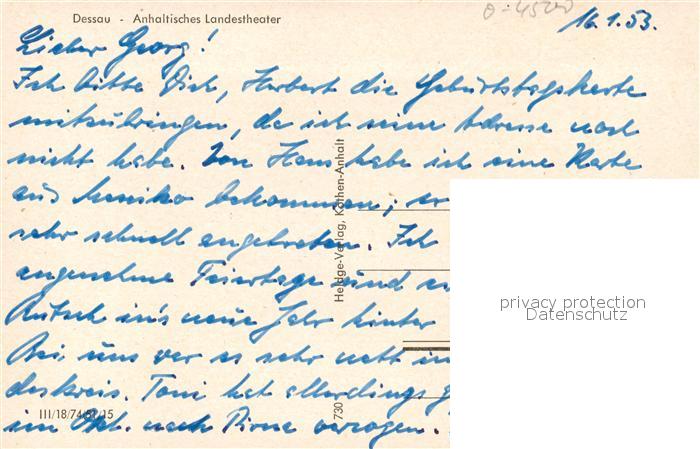 Dessau - Anhaltisches Landestheater
16.1.53.
Lieber Georg!
Ich bitte Dich, Herbert die Geburtstagskarte
mitzubringen, da ich seine Adresse noch
nicht habe. Von Hans habe ich eine Karte
aus Mexiko bekommen; er
sehr schnell angetreten. Ich
angenehme Feiertage und
Rutsch in's neue Jahr hinter
Bei uns war es sehr nett im
deskreis. Toni hat allerdings
im Okt. nach Pirna verzogen.
Heldge-Verlag, Köthen-Anhalt
730
III/18/74/51/15
privacy protection
Datenschutz